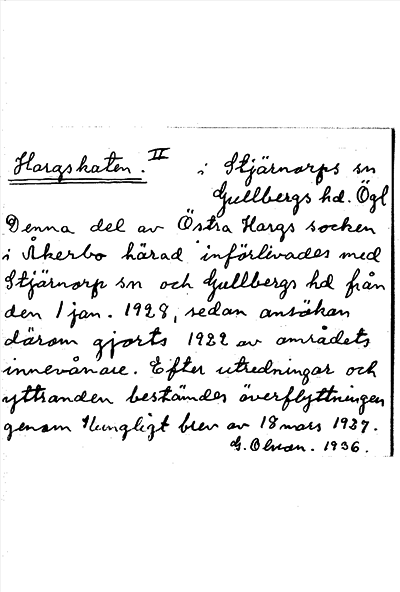 Hargskaten. II i Stjärnorps sn
Gullbergs hd. Ögl
Denna del av Östra Hargs socken
i Åkerbo härad införlivades med
Stjärnorp sn och Gullbergs hd från
den 1 jan. 1928, sedan ansökan
därom gjorts 1922 av områdets
innevånare. Efter utredningar och
yttranden bestämdes överflyttningen
genom Kungligt brev av 18 mars 1927.
G. Olsson. 1936.